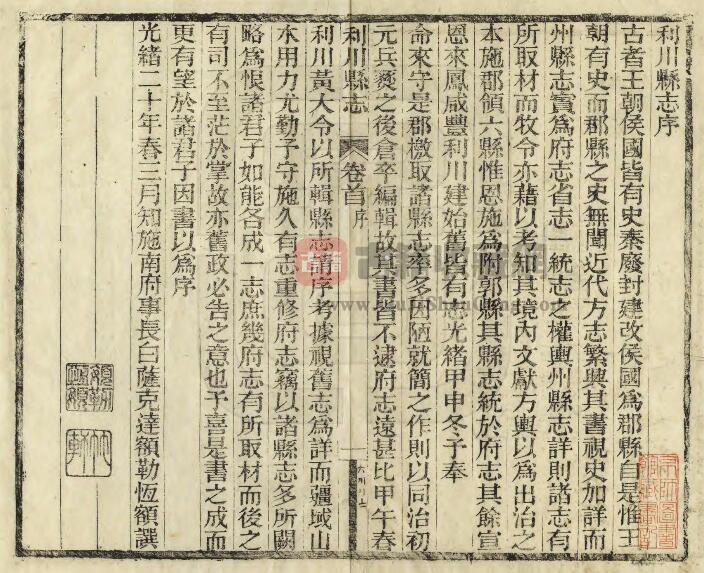 利川縣志序
古者王朝侯國皆有史秦廢封建改侯國爲郡縣自是惟王
朝有史而郡縣之史無聞近代方志繁興其書視史加詳而
州縣志實爲府志省志一統志之權輿州縣志詳則諸志有
所取材而牧令亦藉以考知其境內文獻方輿以爲出治之
本施郡領六縣惟恩施爲附郭縣其縣志統於府志其餘宣
恩來鳳咸豐利川建始舊皆有志光緒甲申冬予奉
命來守是郡檄取諸縣志率多因陋就簡之作則以同治初
元兵燹之後倉卒編輯故其書皆不逮府志遠甚比甲午春
利川縣志 卷首 序
利川黃大令以所輯縣志請序考據視舊志爲詳而疆域山
水用力尤勤予守施久有志重修府志竊以諸縣志多所闕
略爲悵諸君子如能各成一志庶幾府志有所取材而後之
有司不至茫於掌故亦舊政必告之意也予喜是書之成而
更有望於諸君子因書以爲序
光緒二十年春三月知施南府事長白薩克達額勒恆額譔